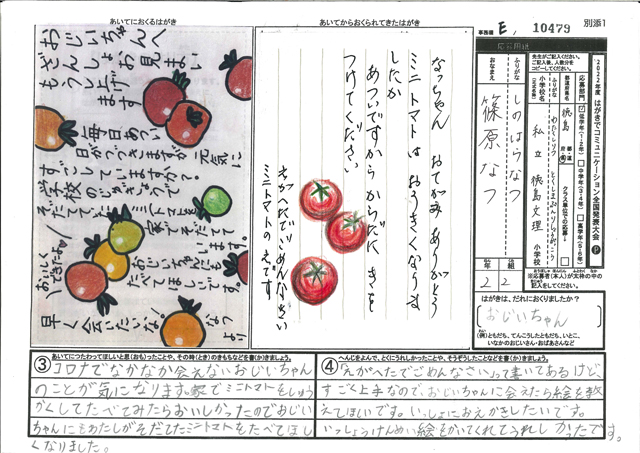 あいてにおくるはがき
おじいちゃんへ
ざんしょお見まい
もうし上げ
ます
毎日あつい
日がつづきますが元気に
すごしていますか?
学校の
そだてたミニトマトを
家でそだてて
います。
おじいちゃんにも
たべてほしいです。
早く会いたいな!
なつ
より
おいしく
できたよ
あいてからおくられてきたはがき
なっちゃん おてがみ ありがとう
ミニトマトは おうきくなりま
したか
あついですから からだに きを
つけてください
えが へたで ごめんなさい
ミニトマトの えです
事務欄 E, 10479
別添1
応募用紙
先生がご記入ください。
ご記入後、人数分を
コピーしてください。
2022年度 はがきでコミュニケーション全国発表大会 P
応募部門
低学年(1・2年)
中学年(3・4年)
高学年(5・6年)
都道府県名
徳島
都・道
府・県
クラス単位での応募
ふりがな
小学校名
(正式名称)
私立 徳島文理 小学校
ふりがな
しのはらなつ
おなまえ
篠原なつ
年 組
2 2
※応募者(本人)が太枠の中の
記入をしてください。
はがきは、だれにおくりましたか?
おじいちゃん
(例)ともだち、てんこうしたともだち、いとこ、
いなかのおじいさん・おばあさんなど
③ あいてにつたわってほしいと思(おも)ったことや、その時(とき)のきもちなどを書(か)きましょう。
コロナでなかなか会えないおじいちゃん
のことが気になります。家でミニトマトをしゅう
かくしてたべてみたらおいしかったのでおじい
ちゃんにもわたしがそだてたミニトマトをたべてほし
くなりました。
④ へんじをよんで、とくにうれしかったことや、そうぞうしたことなどを書(か)きましょう。
「えがへたでごめんなさい」って書いてあるけど、
すごく上手なので、おじいちゃんに会えたら絵を教
えてほしいです。いっしょにおえかきしたいです。
いっしょうけんめい絵をかいてくれてうれしかったです。